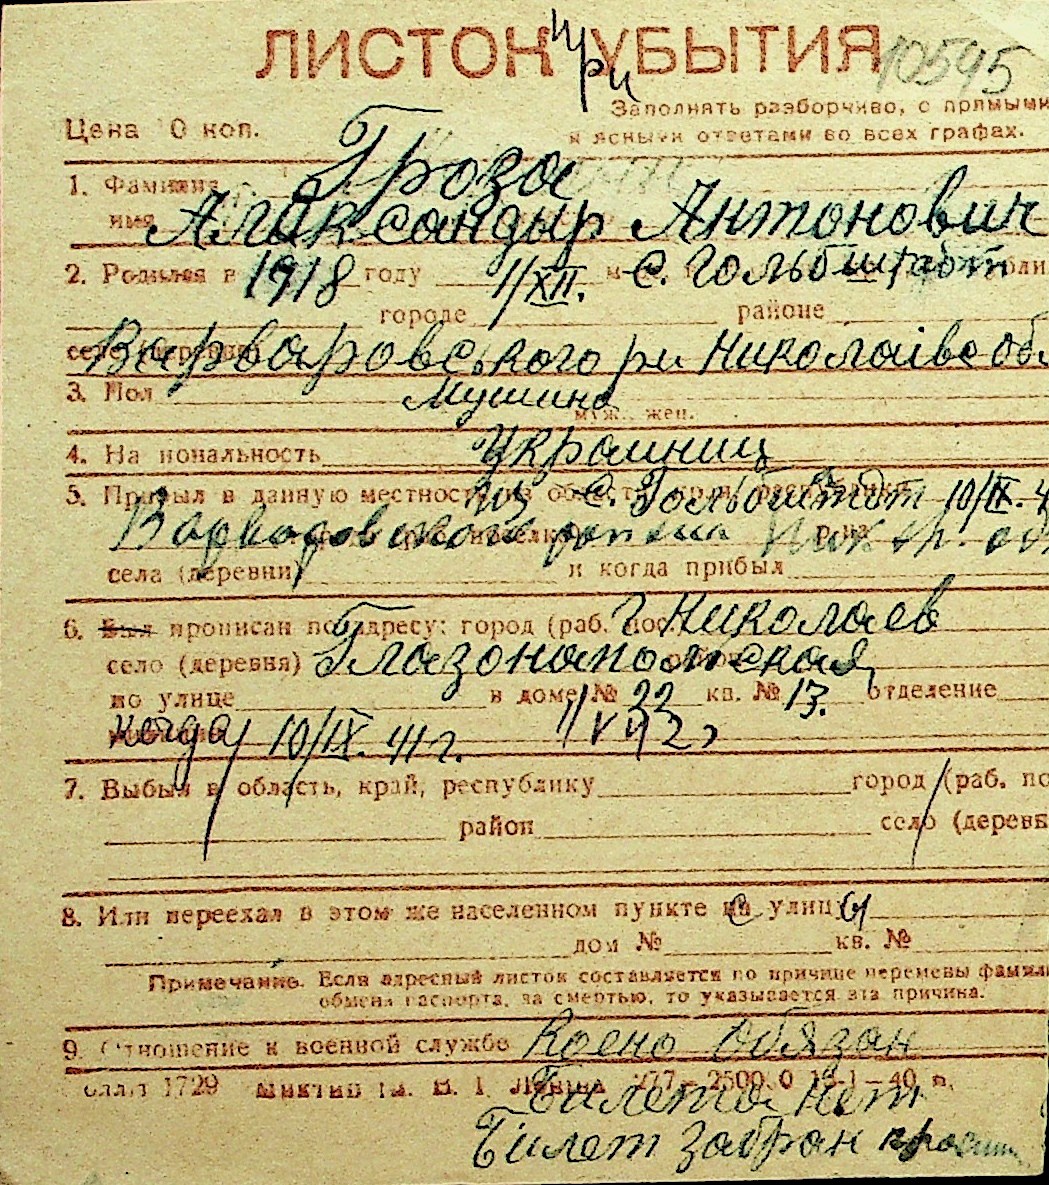 ЛИСТОК при УБЫТИЯ 10595
Заполнять разборчиво, с прямыми
Цена 10 коп. и ясными ответами во всех графах.
1. Фамилия Гроза
имя Александыр Антонович
2. Родился в 1918 году 1/XII. с. Гольбштабт
городе районе
Варваровського р-н Николаівс обл
3. Пол Мушина
муж. жен.
4. Национальность Украиниц
5. Прибыл в данную местность из с. Гольбштадт 10/IX. 4
Варваровского
села (деревни) и когда прибыл
6. Был прописан по адресу: город (раб. пос.) г Николаев
село (деревня)
по улице в доме № 22 кв. № 13. отделение
когда 10/IX. 41 г.
7. Выбыл в область, край, республику город (раб. по
район село (деревн
8. Или переехал в этом же населенном пункте с улицы
дом № кв. №
Примечание. Если адресный листок составляется по причине перемены фамили
обмена паспорта, за смертью, то указывается эта причина.
9. Отношение к военной службе Воено обязан
1729
Билета нет
Билет забран